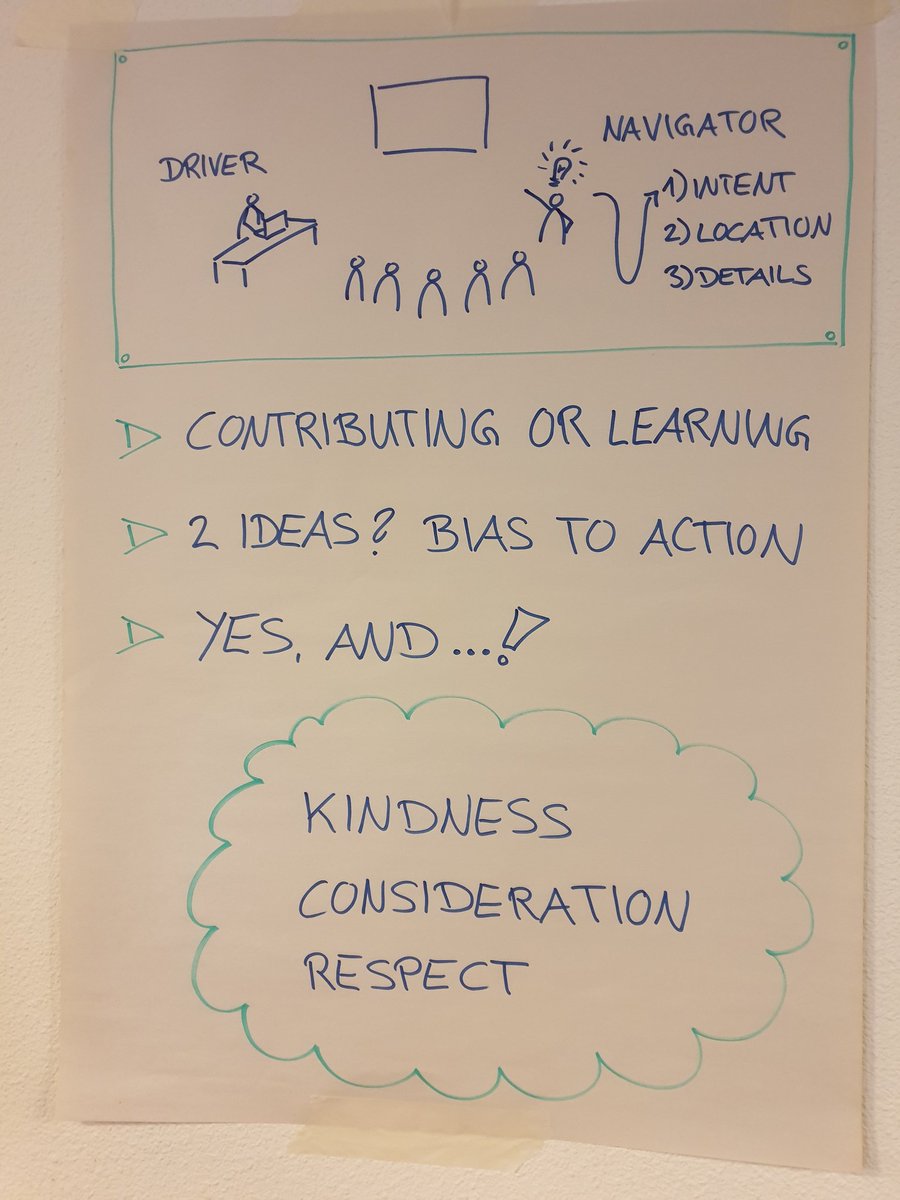 DRIVER
NAVIGATOR
1) INTENT
2) LOCATION
3) DETAILS
CONTRIBUTING OR LEARNING
2 IDEAS? BIAS TO ACTION
YES, AND...!
KINDNESS
CONSIDERATION
RESPECT